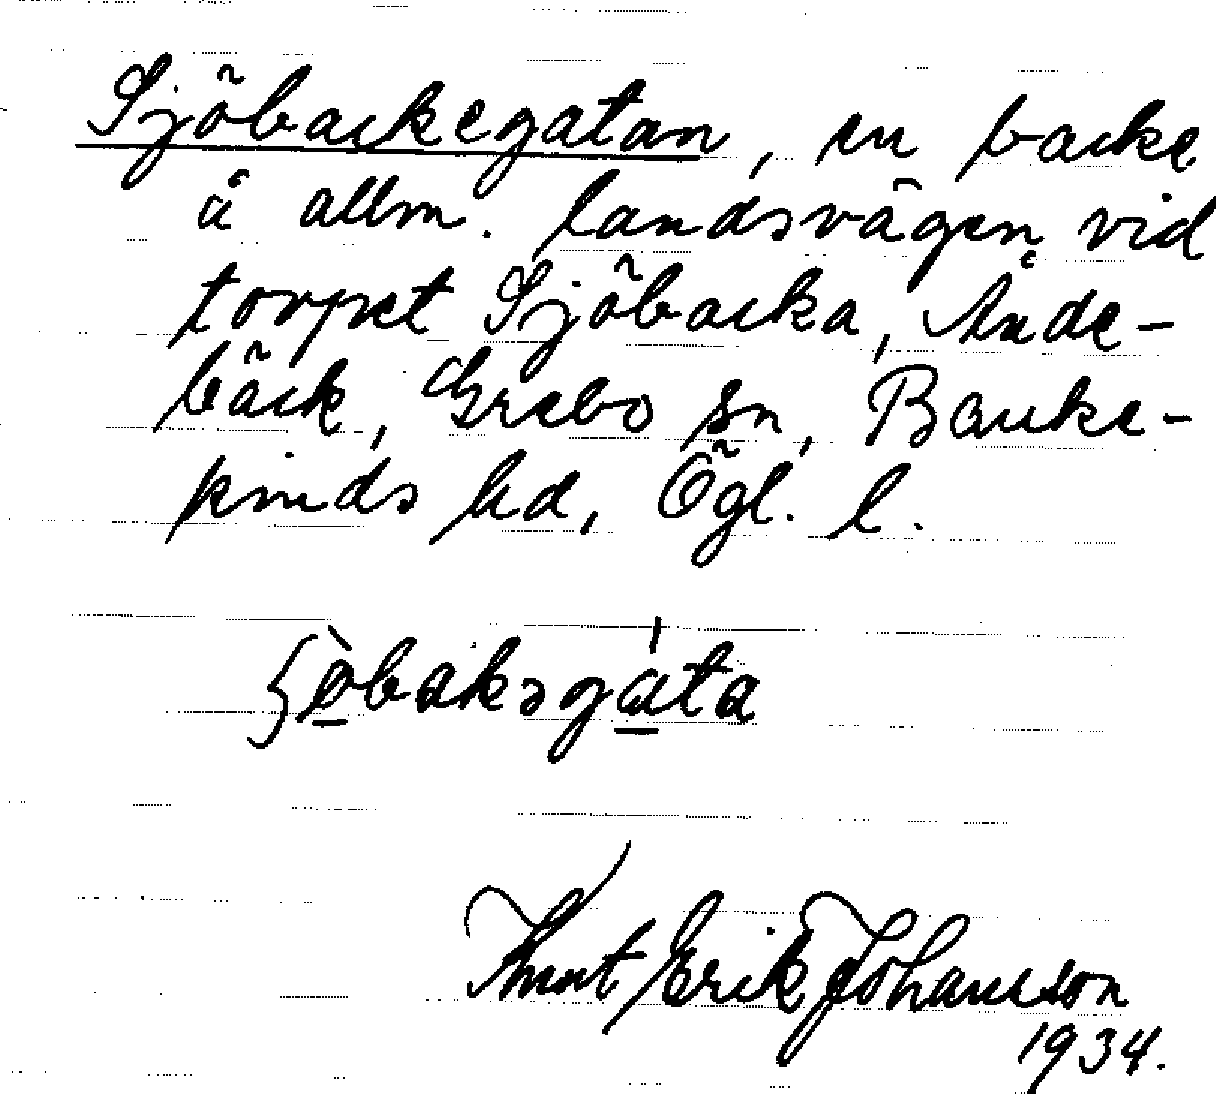 Sjöbackegatan, en backe
å allm. landsvägen vid
torpet Sjöbacka, Ånde-
bäck, Grebo sn, Banke-
kinds hd, Ögl. l.
ʃòbaksgáta
Knut Erik Johansson
1934.